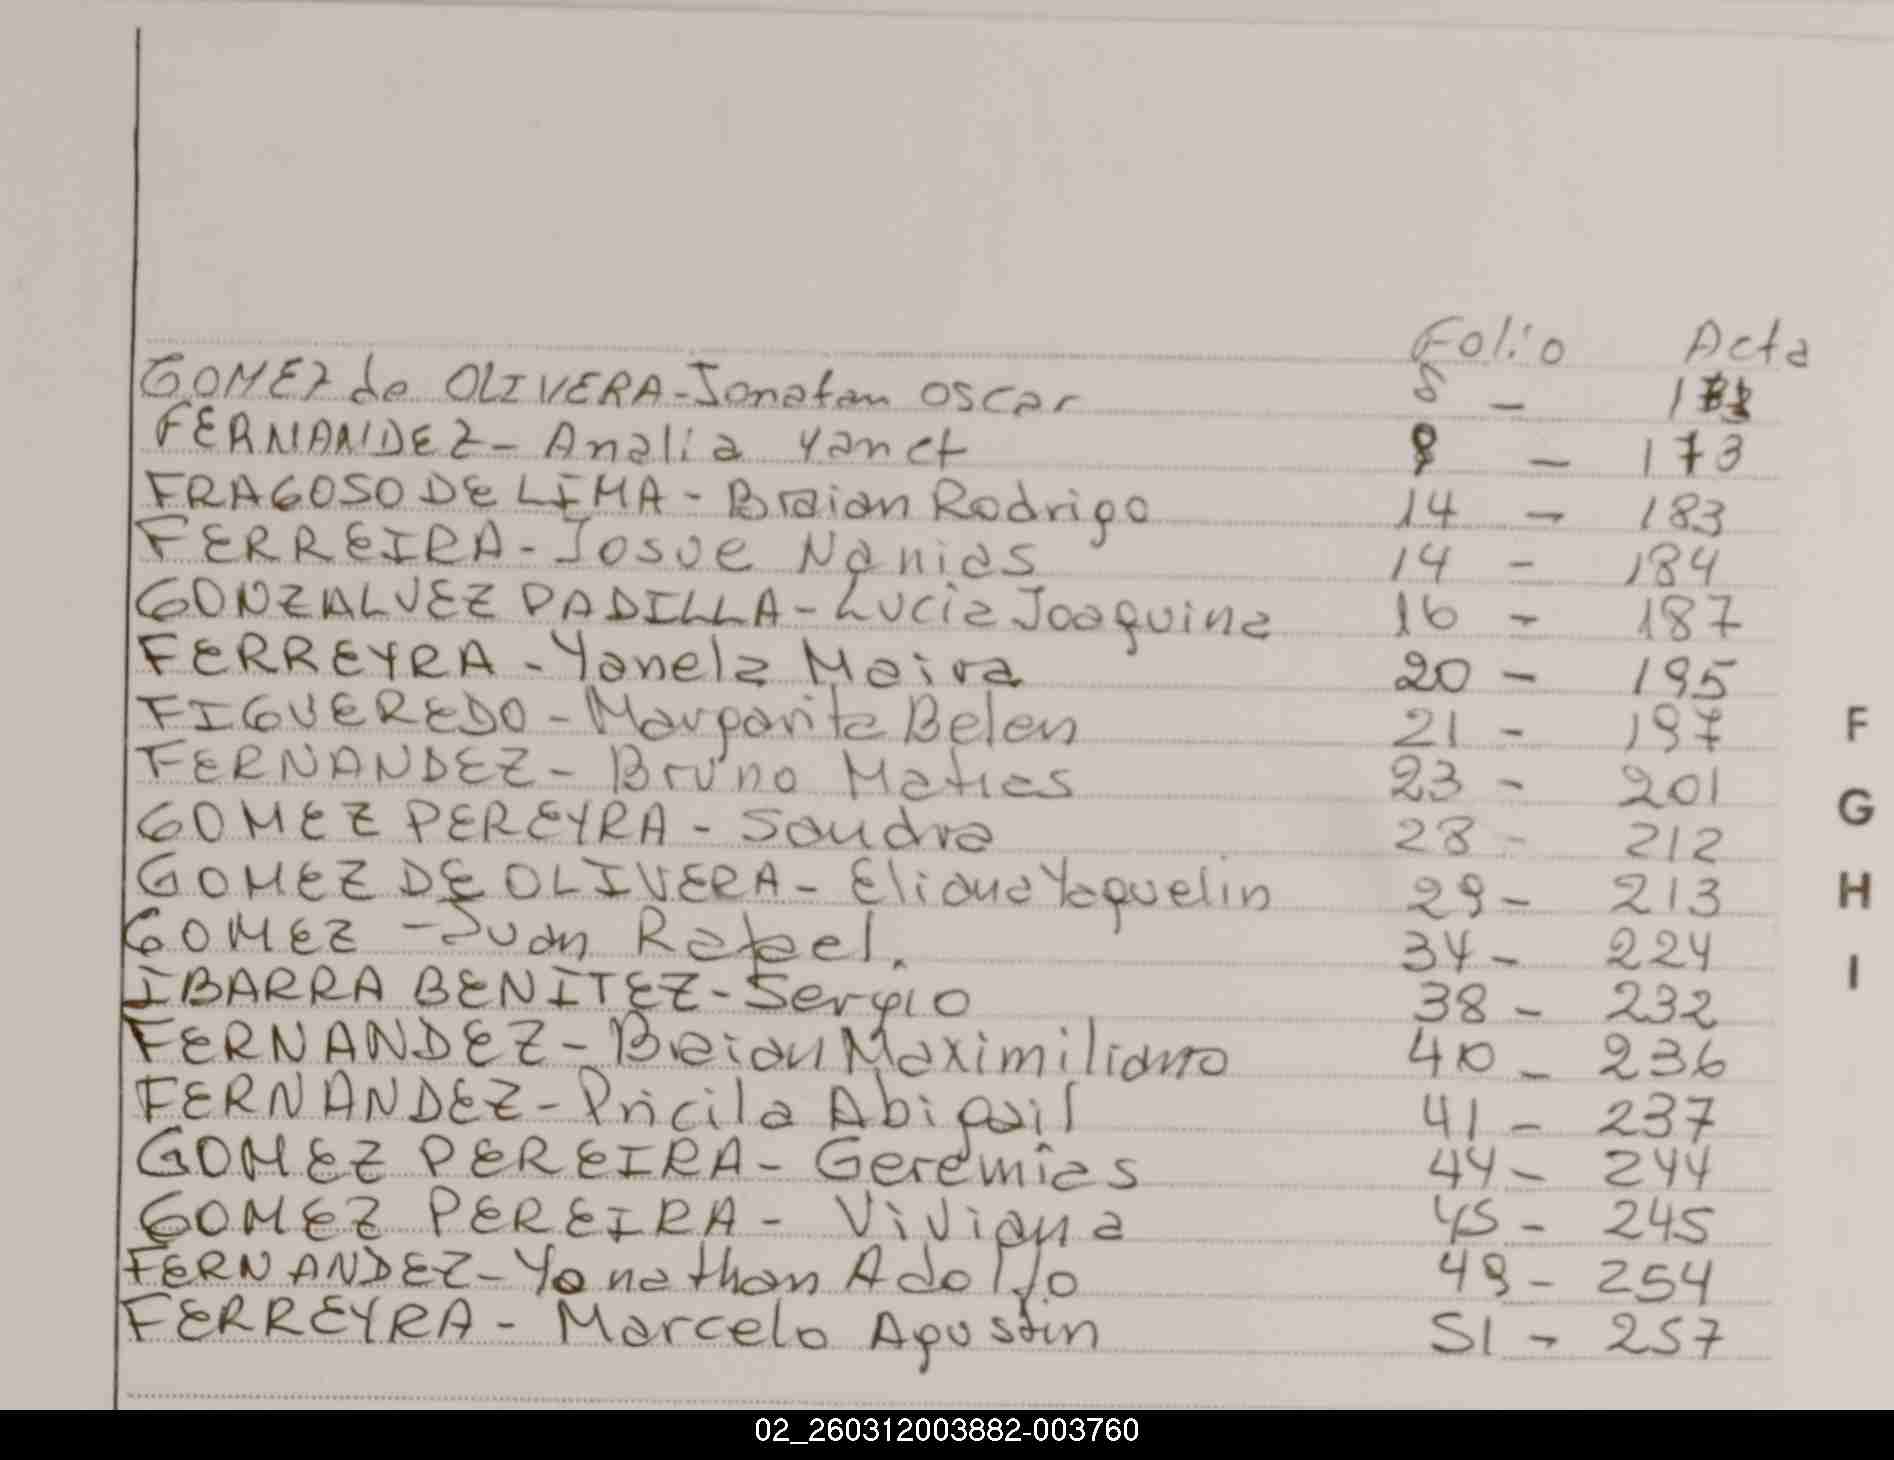 Folio Acta
GOMEZ de OLIVERA - Jonatan Oscar 8 -
FERNANDEZ - Analia Yanet 9 - 173
FRAGOSO DE LIMA - Braian Rodrigo 14 - 183
FERREIRA - Josue Nanias 14 - 184
GONZALVEZ PADILLA - Lucia Joaquina 16 - 187
FERREYRA - Yanela Maira 20 - 195
FIGUEREDO - Margarita Belen 21 - 197
FERNANDEZ - Bruno Matias 23 - 201
GOMEZ PEREYRA - Sandra 28 - 212
GOMEZ DE OLIVERA - Eliana Yaquelin 29 - 213
GOMEZ - Juan Rafael. 34 - 224
IBARRA BENITEZ - Sergio 38 - 232
FERNANDEZ - Braian Maximiliano 40 - 236
FERNANDEZ - Pricila Abigail 41 - 237
GOMEZ PEREIRA - Geremias 44 - 244
GOMEZ PEREIRA - Viviana 45 - 245
FERNANDEZ - Yonathan Adolfo 49 - 254
FERREYRA - Marcelo Agustin 51 - 257
F
G
H
I
02_260312003882-003760